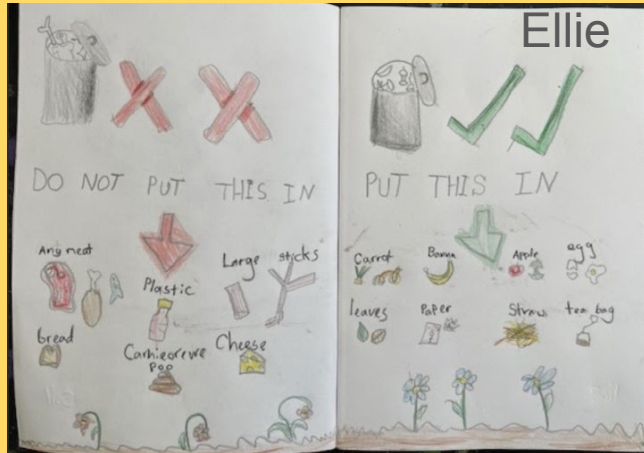 Ellie
DO NOT PUT THIS IN
Any meat
Plastic
Large sticks
bread
Carnieorewe
poo
Cheese
PUT THIS IN
Carrot
Banna
Apple
egg
leaves
Paper
Straw
tea bag